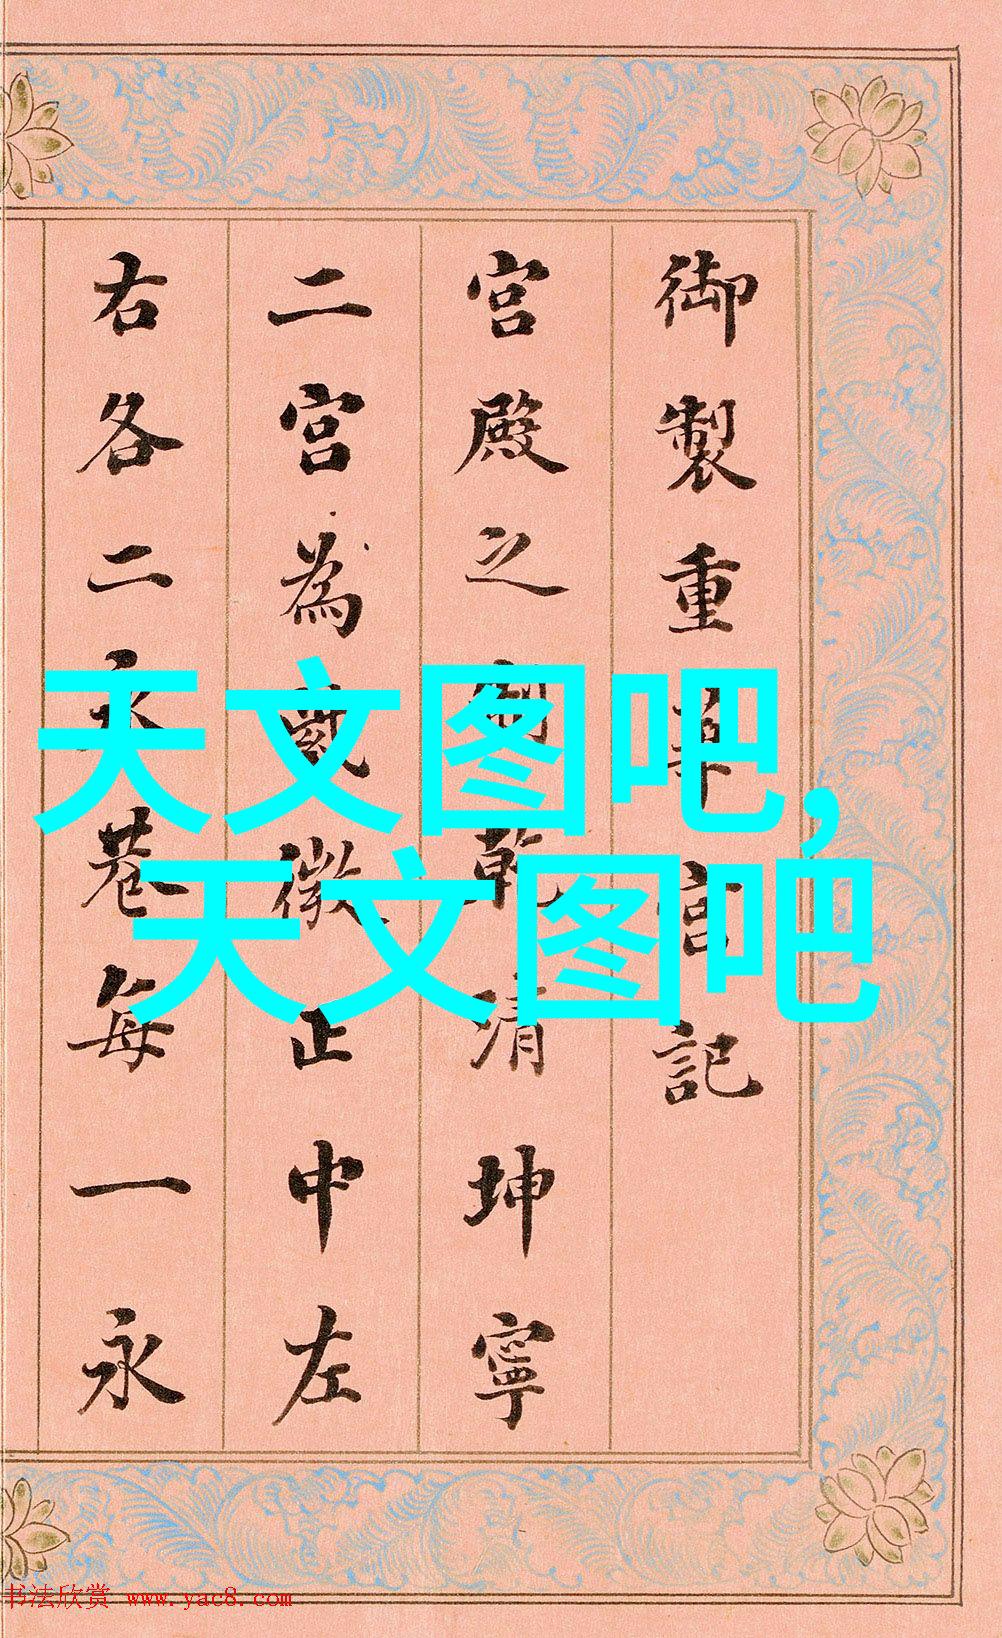 御製重華宮記
宮殿之制乾清坤寧
二宮為微正中左
右各二永巷每一永
天文图吧,
天文图吧
书法欣赏 www.yac8.com